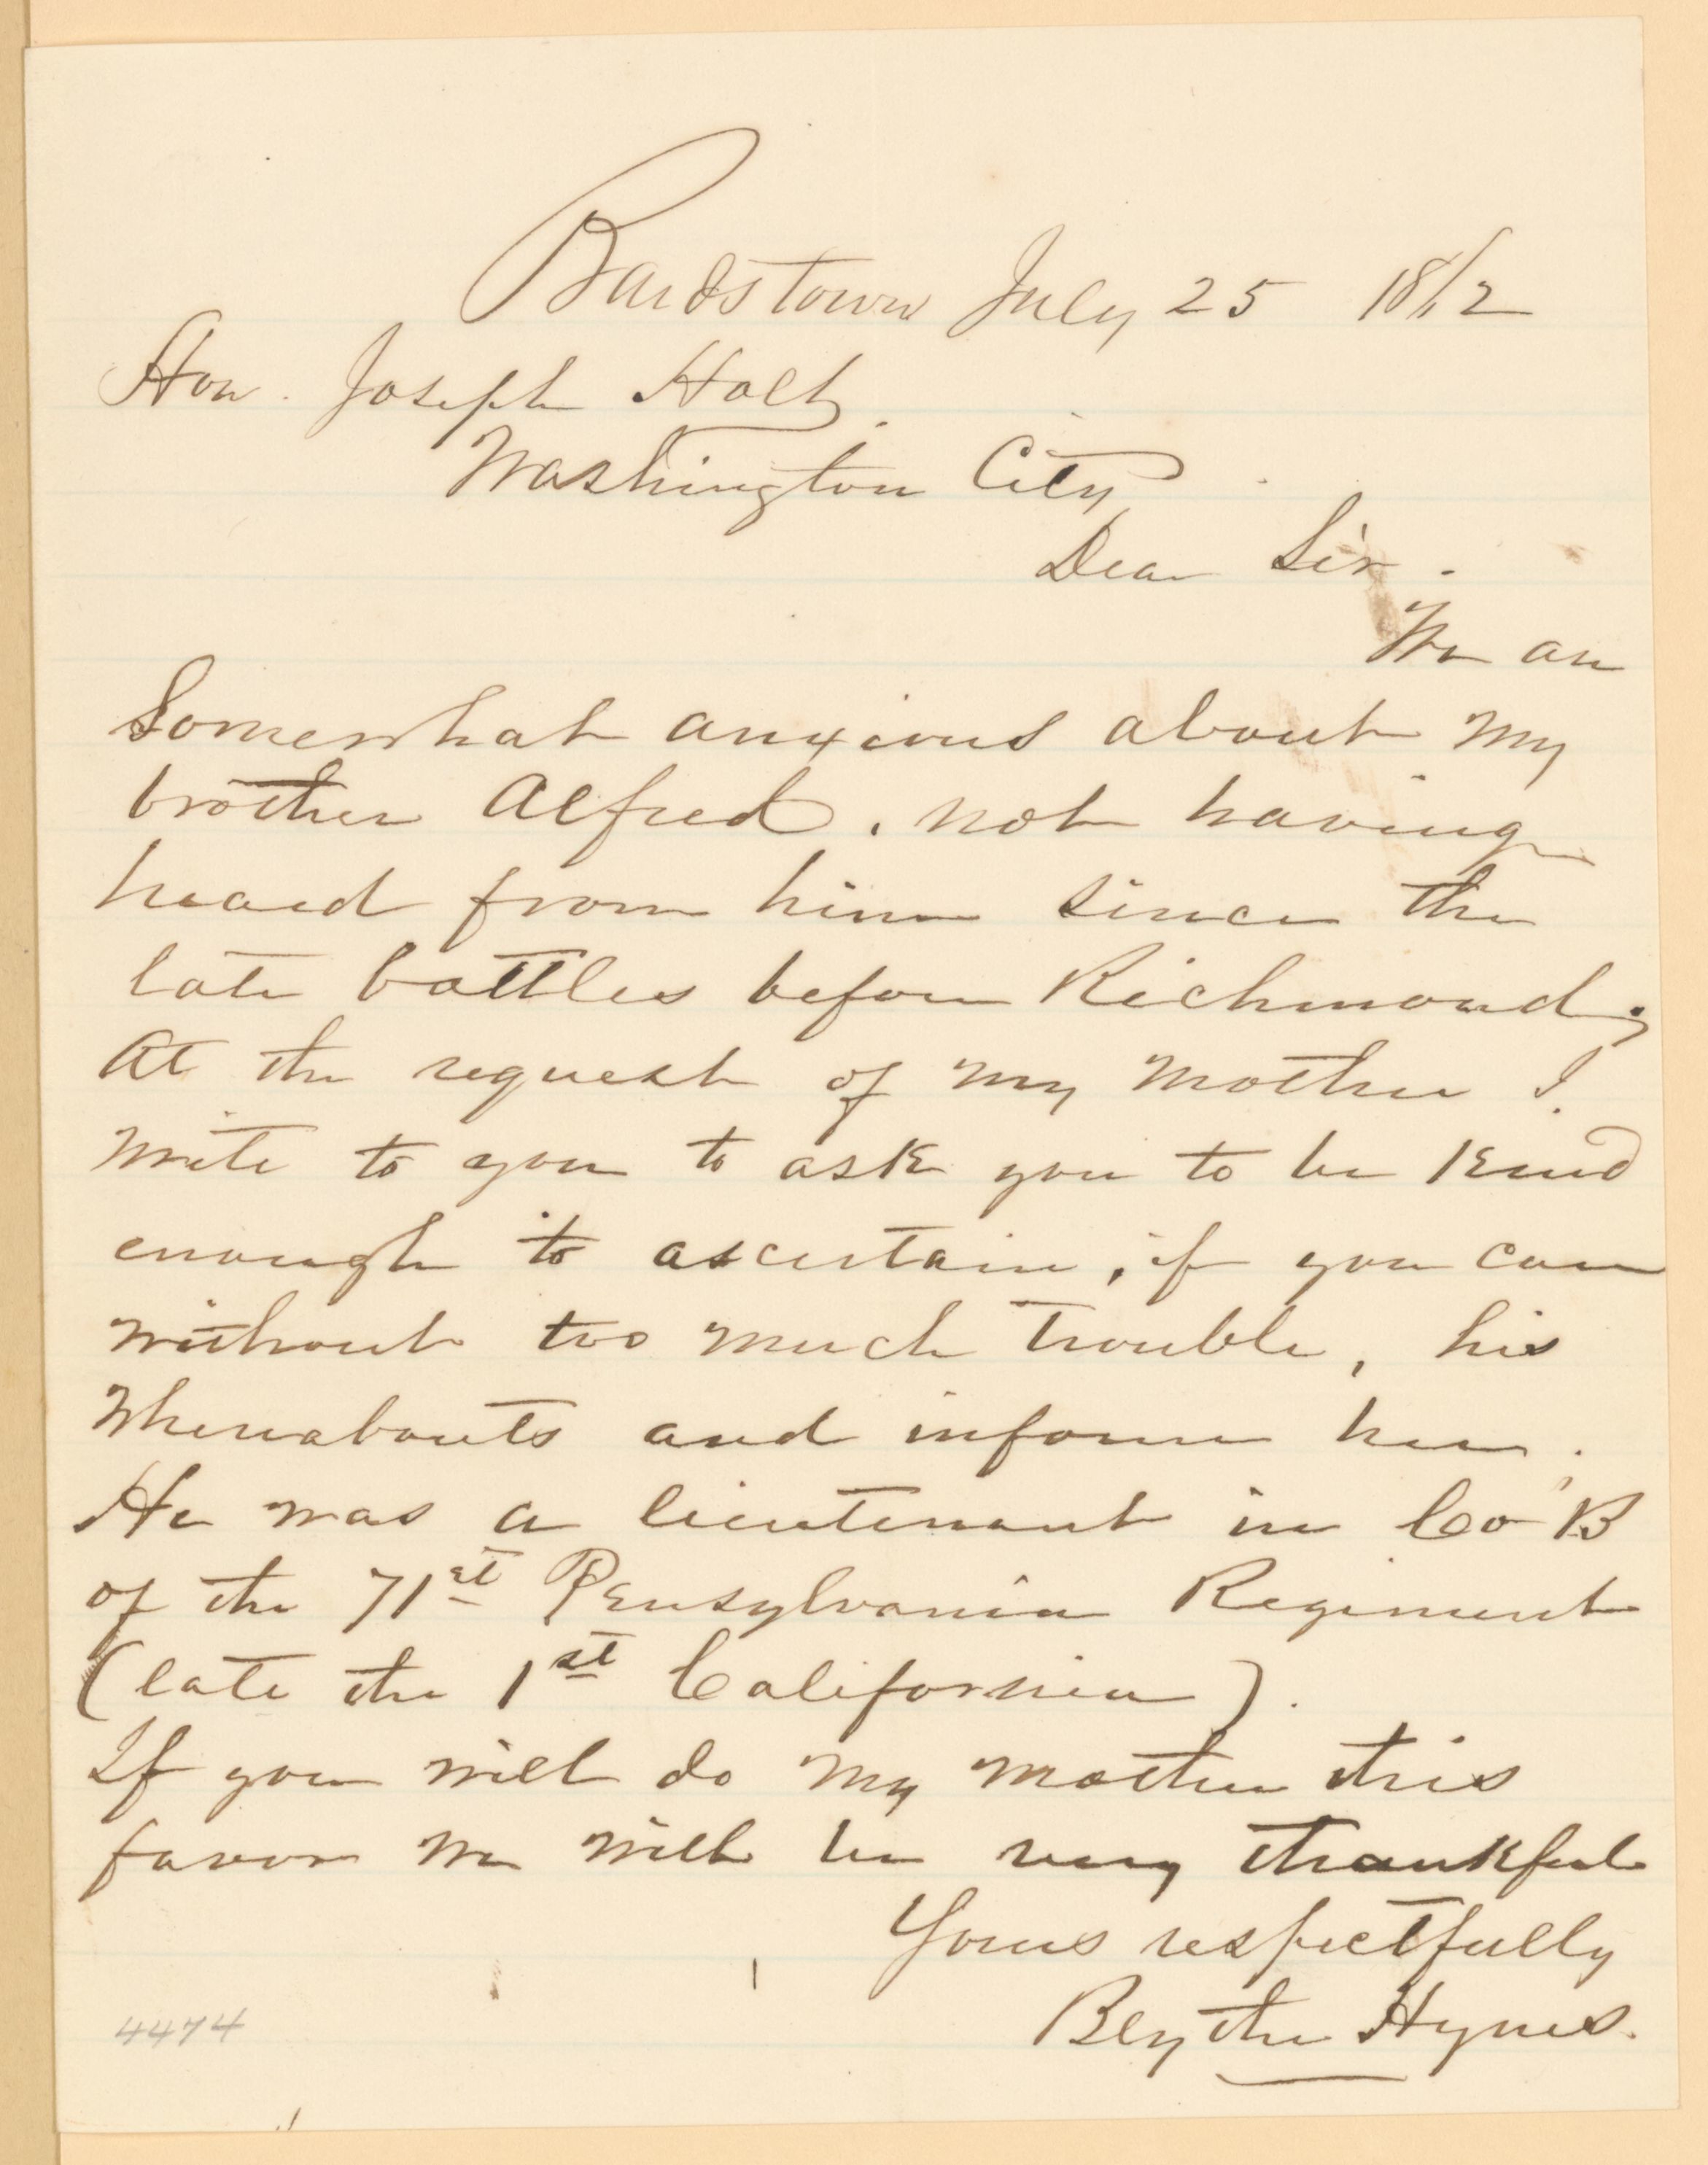 Bardstown July 25 1862
Hon. Joseph Holt.
Washington City
Dear Sir.
We are
Somewhat anxious about my
brother Alfred, not having
heard from him since the
late battles before Richmond;
At the request of my mother I
write to you to ask you to be kind
enough to ascertain, if you can
without too much trouble, his
whereabouts and inform her.
He was a lieutenant in Co B
of the 71st Pensylvania Regiment
(late the 1st California).
If you will do my mother this
favor we will be very thankful
Yours respectfully
Blythe Hynes.
4474